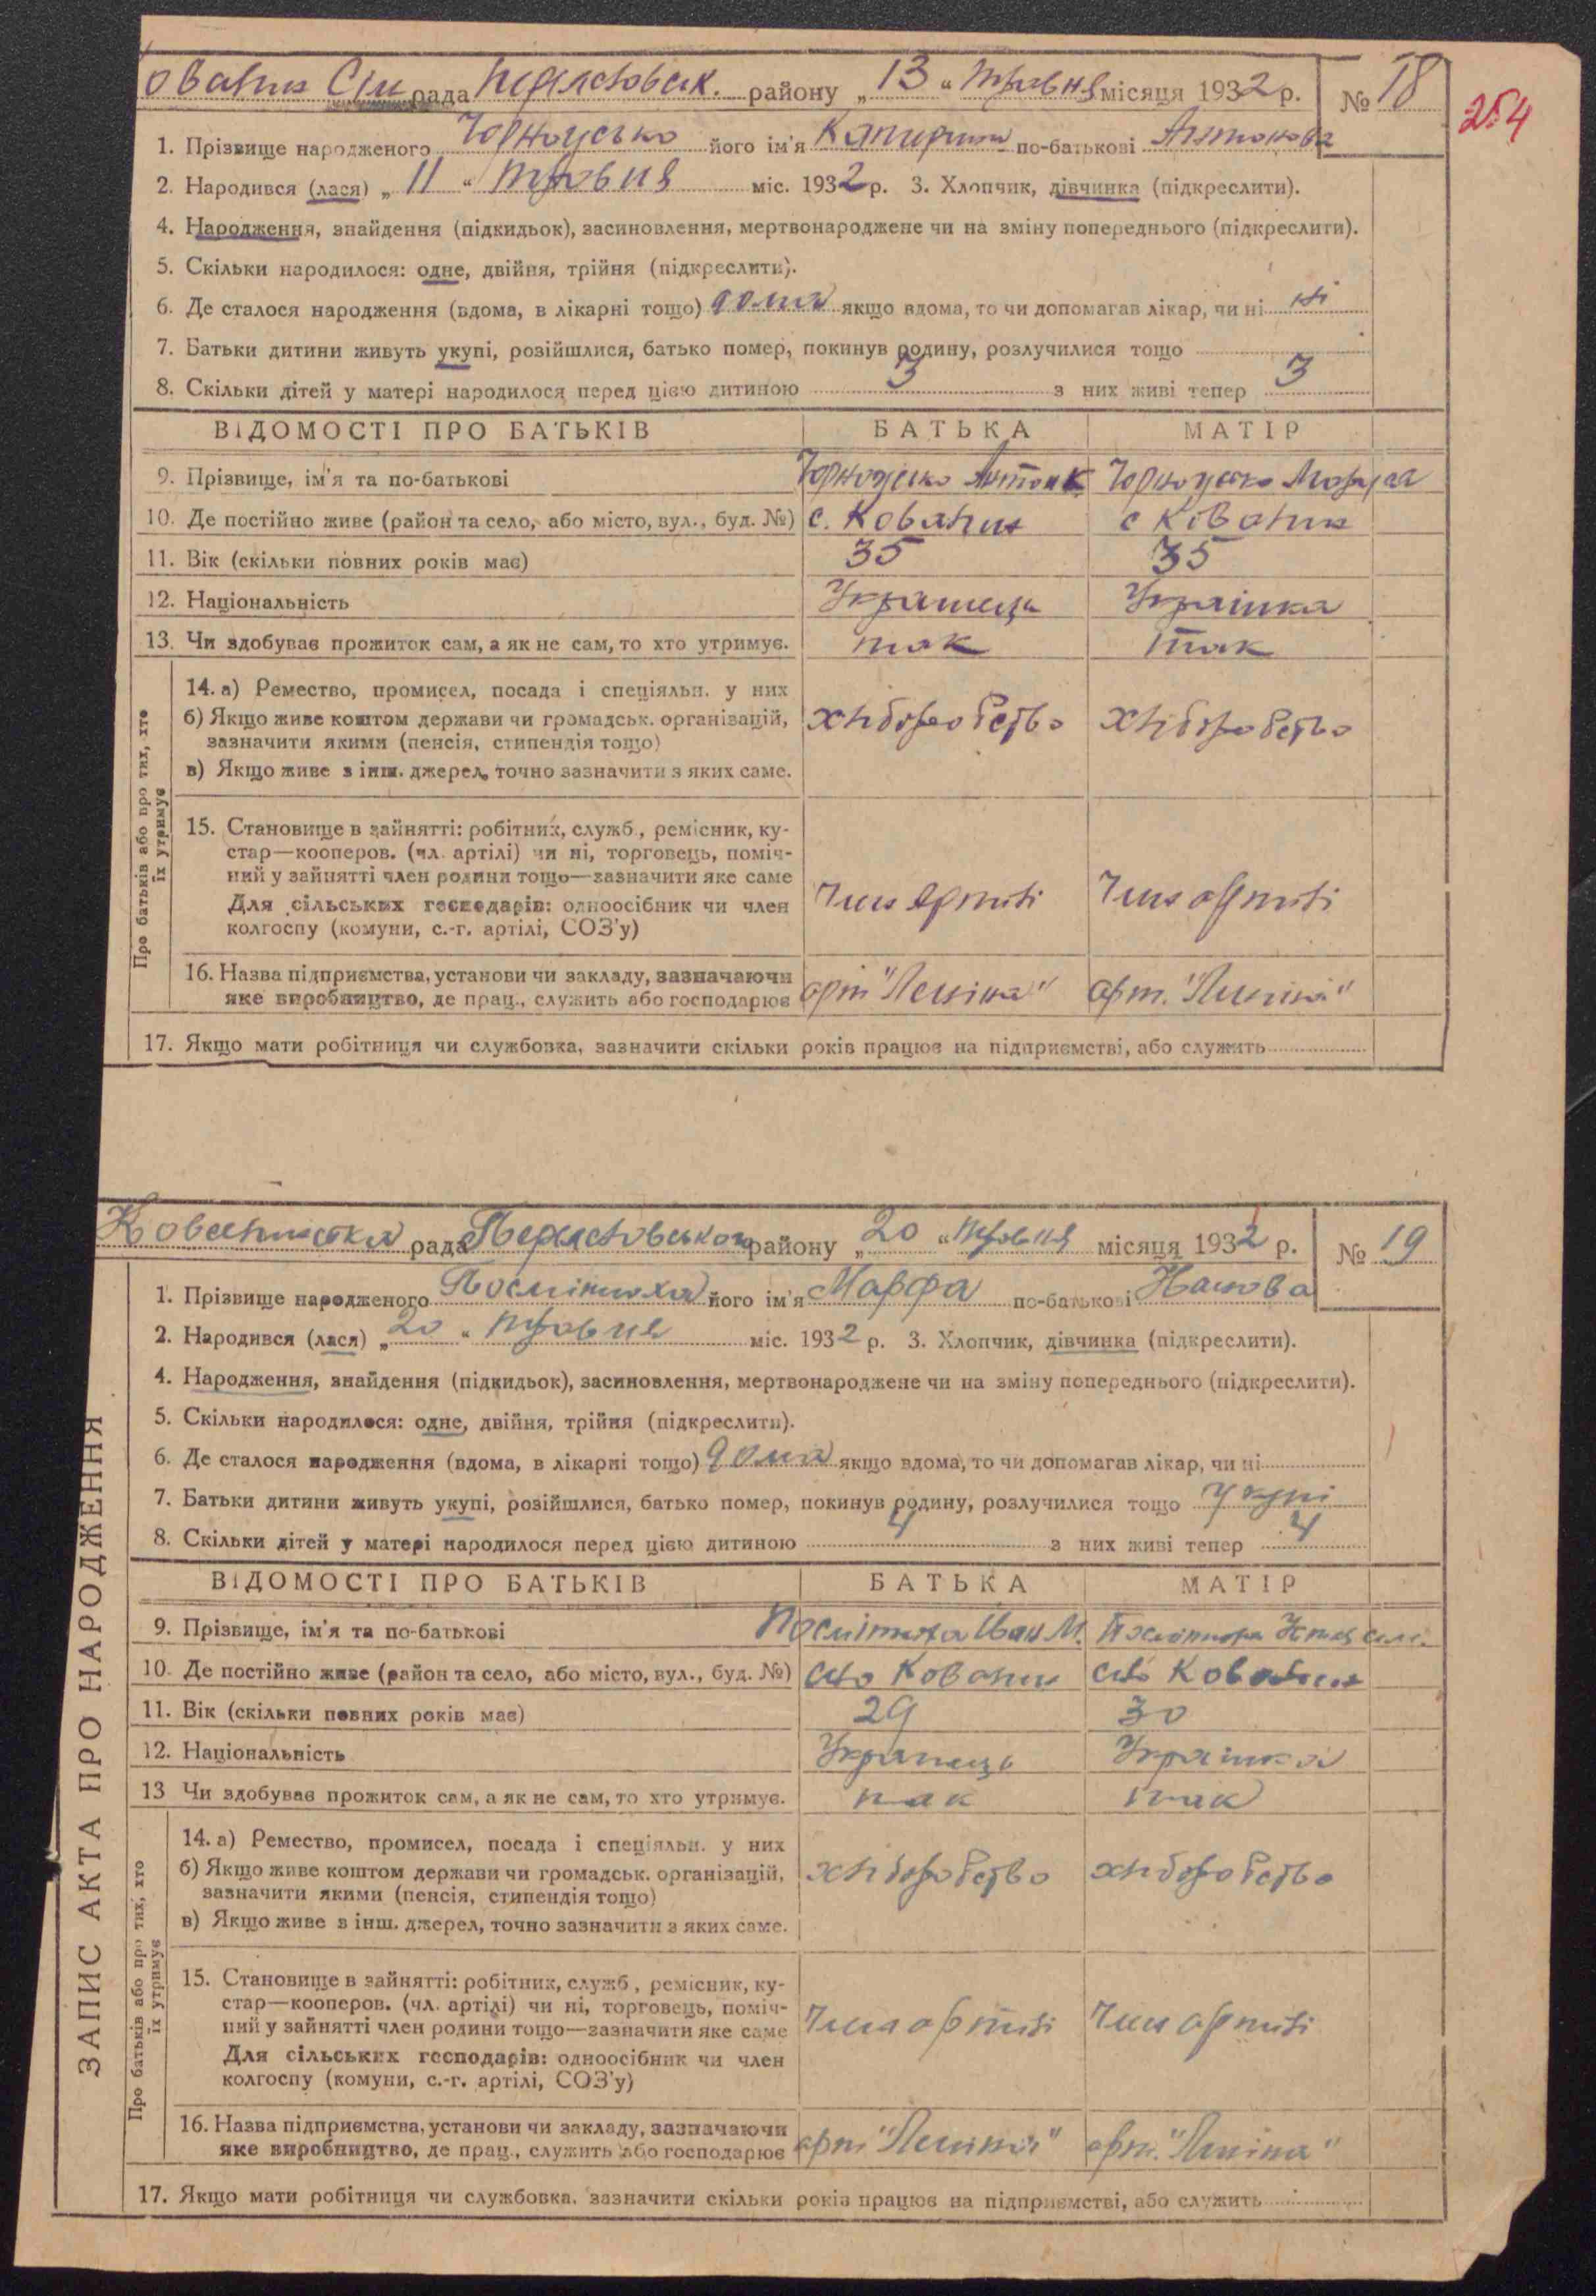 Сіль рада района „13“ травня місяця 1932 р. № 18
254
1. Прізвище народженого його ім'я Катирина по-батькові Антонова
2. Народився (лася) „11“ травня міс. 1932 р. 3. Хлопчик, дівчинка (підкреслити).
4. Народження, знайдення (підкидьок), засиновлення, мертвонароджене чи на зміну попереднього (підкреслити).
5. Скільки народилося: одне, двійня, трійня (підкреслити).
6. Де сталося народження (вдома, в лікарні тощо) дома якщо вдома, то чи допомагав лікар, чи ні ні
7. Батьки дитини живуть укупі, розійшлися, батько помер, покинув родину, розлучилися тощо
8. Скільки дітей у матері народилося перед цією дитиною 3 з них живі тепер 3
ВІДОМОСТІ ПРО БАТЬКІВ БАТЬКА МАТІР
9. Прізвище, ім'я та по-батькові Антон
10. Де постійно живе (район та село, або місто, вул., буд. №) с. Ковалин с Ковалин
11. Вік (скільки повних років має) 35 35
12. Національність Українець Українка
13. Чи здобуває прожиток сам, а як не сам, то хто утримує. так так
Про батьків або про тих, хто їх утримує
14. а) Ремество, промисел, посада і спеціяльн. у них
б) Якщо живе коштом держави чи громадськ. організацій, хліборобство хліборобство
зазначити якими (пенсія, стипендія тощо)
в) Якщо живе з інш. джерел, точно зазначити з яких саме.
15. Становище в зайнятті: робітник, служб., ремісник, ку-
стар—кооперов. (чл. артілі) чи ні, торговець, поміч-
ний у зайнятті член родини тощо—зазначити яке саме
Для сільських господарів: одноосібник чи член Член артілі Член артілі
колгоспу (комуни, с.-г. артілі, СОЗ'у)
16. Назва підприємства, установи чи закладу, зазначаючи
яке виробництво, де прац., служить або господарює арт "Леніна" арт. "Леніна"
17. Якщо мати робітниця чи службовка, зазначити скільки років працює на підприємстві, або служить
ЗАПИС АКТА ПРО НАРОДЖЕННЯ
Ковалинська рада району „20“ травня місяця 1932 р. № 19
1. Прізвище народженого Посмітюха його ім'я Марфа по-батькові
2. Народився (лася) „20“ травня міс. 1932 р. 3. Хлопчик, дівчинка (підкреслити).
4. Народження, знайдення (підкидьок), засиновлення, мертвонароджене чи на зміну попереднього (підкреслити).
5. Скільки народилося: одне, двійня, трійня (підкреслити).
6. Де сталося народження (вдома, в лікарні тощо) дома якщо вдома, то чи допомагав лікар, чи ні
7. Батьки дитини живуть укупі, розійшлися, батько помер, покинув родину, розлучилися тощо укупі
8. Скільки дітей у матері народилося перед цією дитиною 4 з них живі тепер 4
ВІДОМОСТІ ПРО БАТЬКІВ БАТЬКА МАТІР
9. Прізвище, ім'я та по-батькові Посмітюха Іван М. Посмітюха
10. Де постійно живе (район та село, або місто, вул., буд. №) село Ковалин село Ковалин
11. Вік (скільки повних років має) 29 30
12. Національність Українець Українка
13 Чи здобуває прожиток сам, а як не сам, то хто утримує. так так
Про батьків або про тих, хто їх утримує
14. а) Ремество, промисел, посада і спеціяльн. у них
б) Якщо живе коштом держави чи громадськ. організацій, хліборобство хліборобство
зазначити якими (пенсія, стипендія тощо)
в) Якщо живе з інш. джерел, точно зазначити з яких саме.
15. Становище в зайнятті: робітник, служб., ремісник, ку-
стар—кооперов. (чл. артілі) чи ні, торговець, поміч-
ний у зайнятті член родини тощо—зазначити яке саме Член артілі Член артілі
Для сільських господарів: одноосібник чи член
колгоспу (комуни, с.-г. артілі, СОЗ'у)
16. Назва підприємства, установи чи закладу, зазначаючи
яке виробництво, де прац., служить або господарює арт "Леніна" арт. "Леніна"
17. Якщо мати робітниця чи службовка, зазначити скільки років працює на підприємстві, або служить